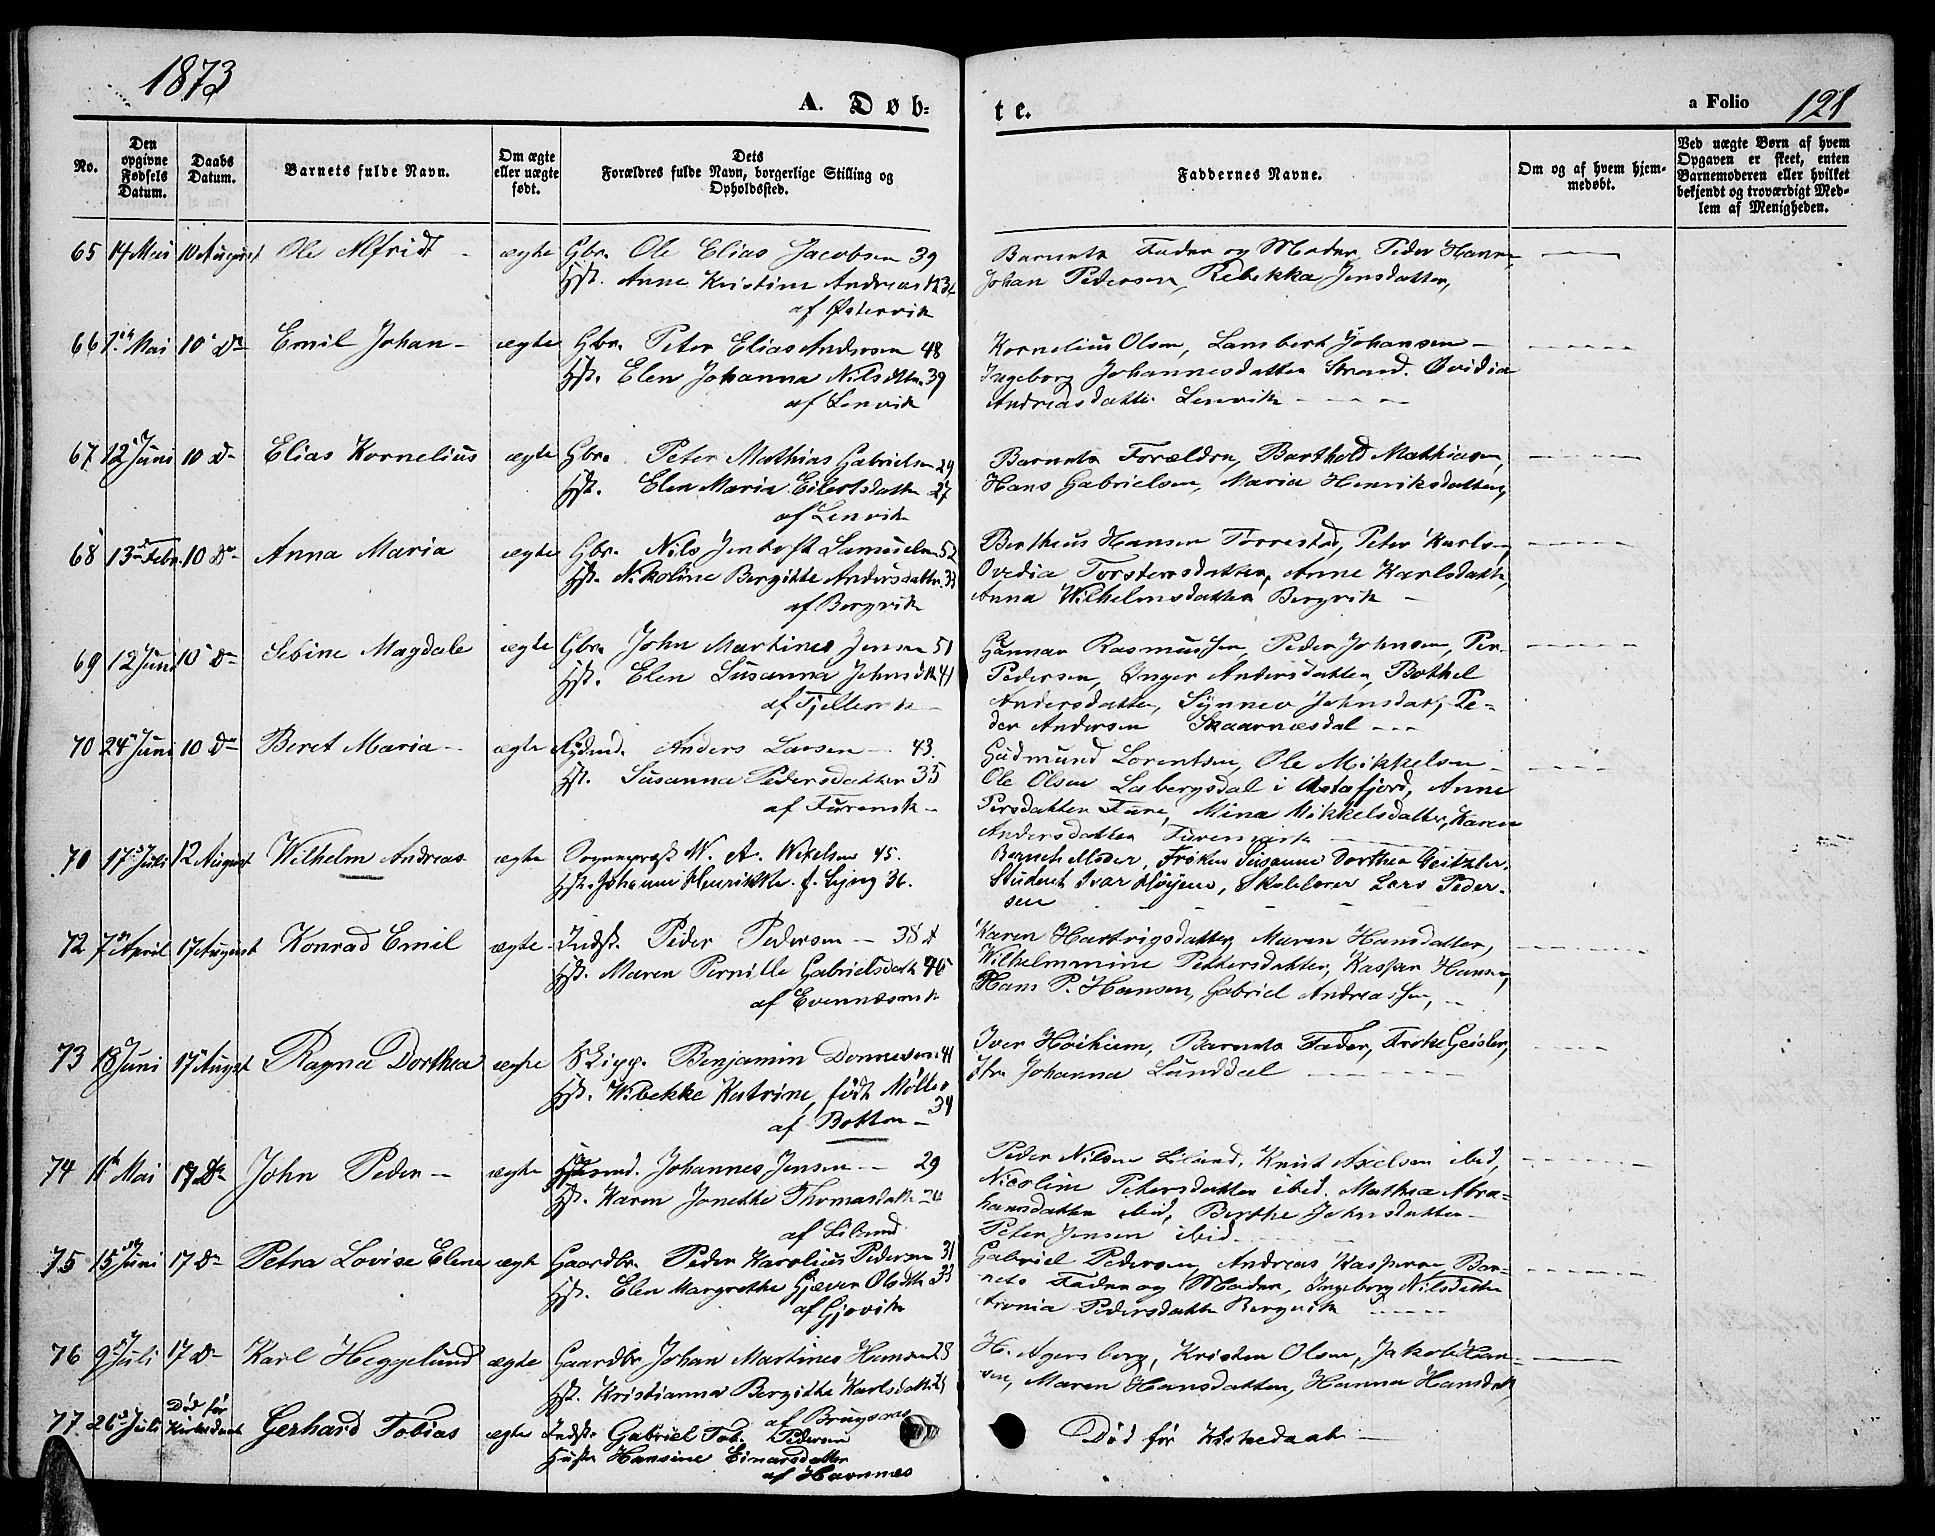 1873
A. Døb=
te.
a Folio 128
No.
Den opgivne Fødsels Datum.
Daabs Datum.
Barnets fulde Navn.
Om ægte eller uægte født.
Dets Forældres fulde Navn, borgerlige Stilling og Opholdssted.
Faddernes Navne.
Om og af hvem hjemmedøbt.
Ved uægte Børn af hvem Opgaven er skeet, enten Barnemoderen eller hvilket bekjendt og troværdigt Medlem af Menigheden.
65 14 Mai 10 August Ole Alfridt - ægte Gbr. Ole Elias Jacobsen 39
Hst. Anne Kristine
af Østervik
Barnets Fader og Moder, Peder Hansen,
Johan Pedersen, Rebekka Jensdatter,
66 Mai 10 Do Emil Johan - ægte Gbr. Peter Elias Andersen 48
Hst. Elen Johanna Nilsdttr. 39
af Lenvik
Kornelius Olsen, Lambert Johansen -
Ingeborg Johannesdatter Strand. Ovidia
Andreasdatter Lenvik - - - -
67 12 Juni 10 Do Elias Kornelius ægte Gbr. Peter Mathias Gabrielsen 29
Hst. Elen Maria Eilertsdatter 27
af Lenvik
Barnets Forældre, Barthold Mathiasen,
Hans Gabrielsen, Maria Henriksdatter,
68 13 Febr. 10 Do Anna Maria ægte Gbr. Nils Jentoft Samuelsen 52
Hst. Nikoline Bergitte Andersdatter 33
af Bergvik
Bertheus Hansen Forrestad, Peter Karlsen,
Ovedia Torstensdatter, Anne Karlsdatter,
Anna Wilhelmsdatter Bergvik -
69 12 Juni 10 Do Sebine Magdale ægte Gbr. John Martines Jensen 51
Hst. Elen Susanna 41
Gunnar Rasmussen, Peder Johnsen, Per
Pedersen, Inger Andersdatter, Bothel
Andersdatter, Synnev Johnsdat, Pe-
der Andersen Skaarnæsdal - - -
70 24 Juni 10 Do Beret Maria - ægte Anders Larsen - 43.
Hst. Susanna Pedersdatter 35
af
Gudmund Lorentsen, Ole Mikkelsen -
Ole Olsen Labergsdal i Astafjord, Anne
Persdatter Fure, Mina Mikkelsdatter, Karen
Andersdatter Furemark
70 17 Juli 12 August Wilhelm Andreas ægte Sognepræst W. A. Wexelsen 45.
Hst. Johanne Henrikke f. 36.
Barnets Moder, Frøken Susanne Dorthea Geitzler,
Student Ivar Høyem, Skolelærer Lars Peder-
sen
72 7 April 17 August Konrad Emil ægte Indst. Peder Pedersen - 38
Hst. Maren Pernille Gabrielsdatt 40
af Evenæsmk
Karen Hartvigsdatter, Maren Hansdatter,
Wilhelmmine Pettersdatter, Kaspar Hansen,
Hans P. Hansen, Gabriel Andreassen, -
73 18 Juni 17 August Ragna Dorthea ægte Skipp. Benjamin Donnesen 41
Hst. Wibekke Katrine, født Møller
34
af Botten -
Iver Høihiem, Barnets Fader, Frøke Geisler,
Fr. Johanna Lunddal - - - -
74 Mai 17 Do John Peder - ægte Johannes Jensen - 29
Hst. Karen Jonette Thomasdatt
af Liland
Peder Nilsen Liland, Knut Axelsen ibid,
Nicoline Petersdatter ibid. Mathea Abra-
hamsdatter ibid, Berthe Johnsdatter
Peter Jensen ibid
75 15 Juni 17 Do Petra Lovise Elene ægte Gaardbr. Peder Karolius Pedersen 31
Hst. Elen Margrethe Gjæver Olsdtr 33
af Gjøvik
Gabriel Pedersen, Andreas Kaspersen, Bar-
nets Fader og Moder, Ingeborg Nilsdatter
Pedersdatter Bergvik - - -
76 9 Juli 17 Do Karl Heggelund ægte Gaardbr Johan Martines Hansen
Hst. Kristianna Bergitte Karlsdatt
af Brugsnæs
H. Agersborg, Kristen Olsen, Jakob Han-
sen, Maren Hansdatter, Hanna Hansdat
77. 26 Juli Død før Kirkedaab Gerhard Tobias ægte Indst. Gabriel Tob. Pedersen
Hustr Hansine Einarsdatter
af Havnnæs
Død før Kirkedaab -